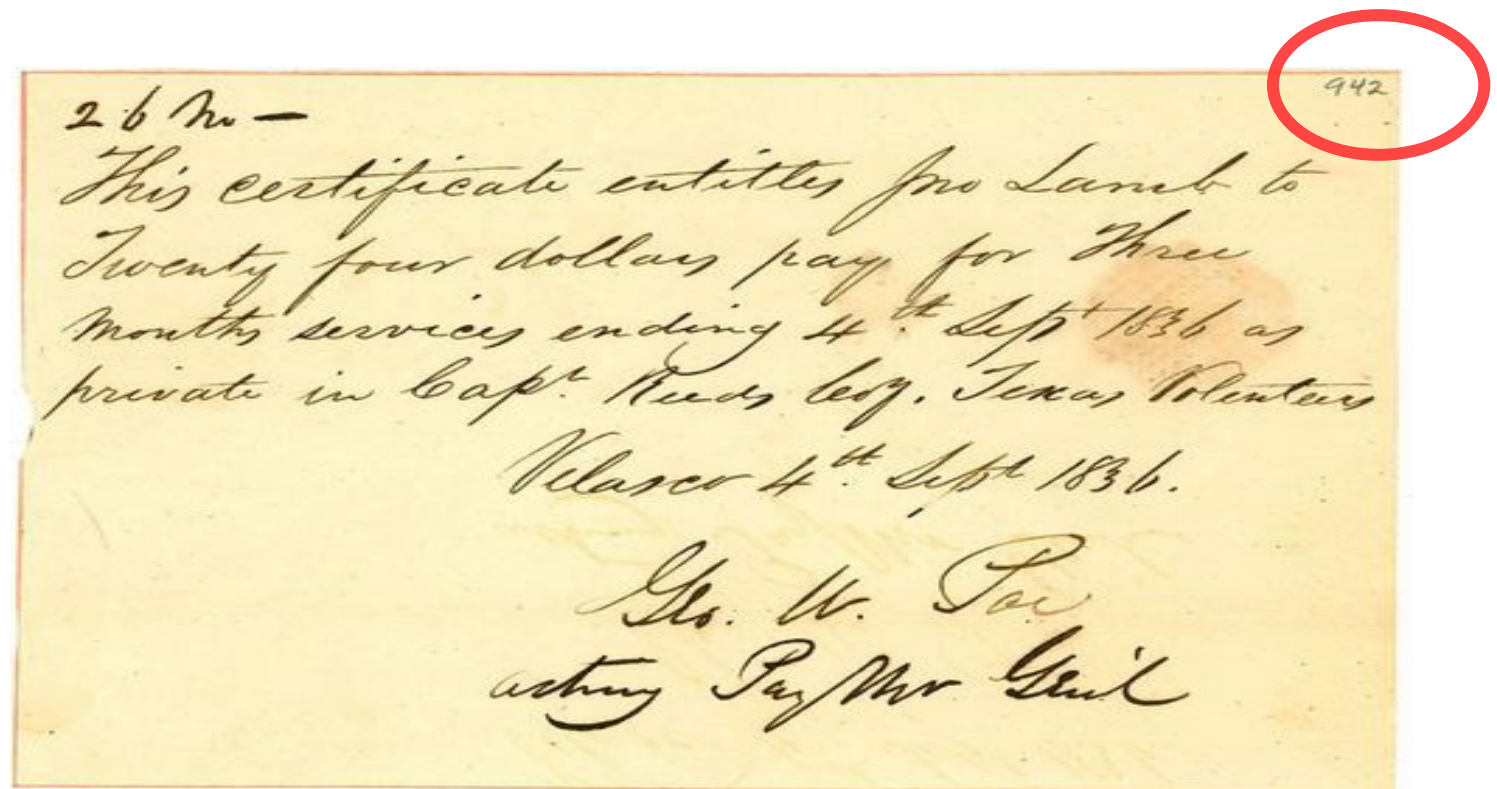 942
2 6 Mo —
This certificate entitles Jno Lamb to
Twenty four dollars pay for Three
Months services ending 4th Sept 1836 as
private in Capt. Reeds Coy. Texas Volunteers
Velasco 4th Sept 1836.
Geo. W. Poe
acting Pay Mr Genl